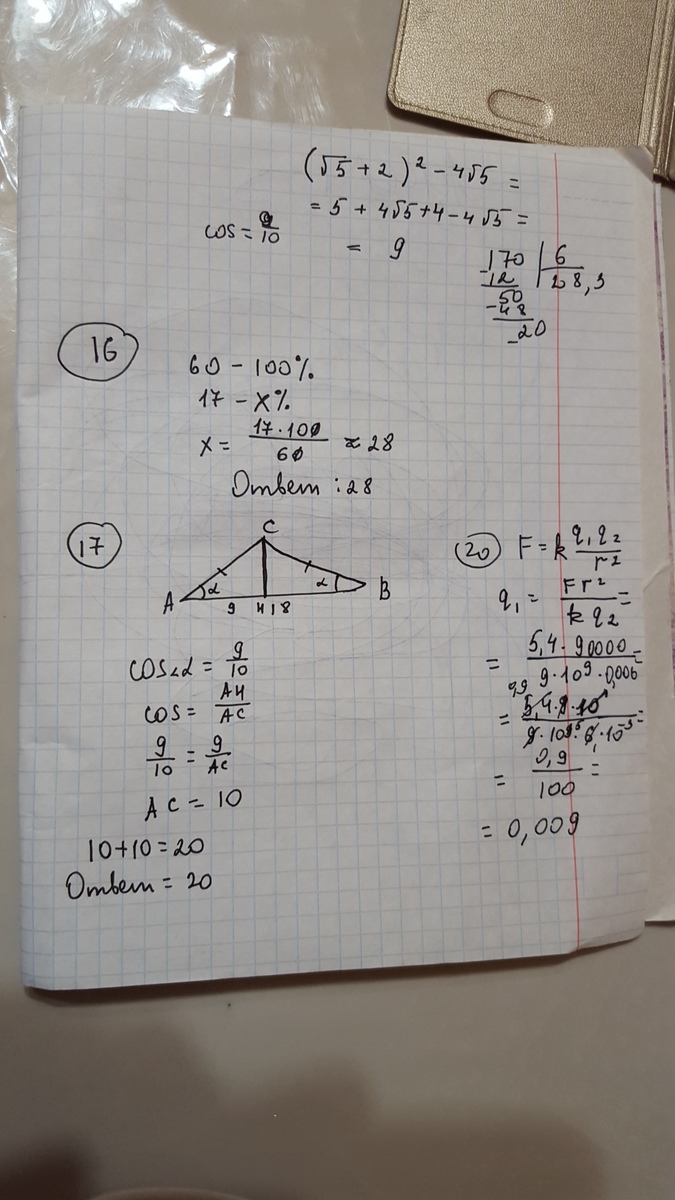 (√5 + 2)² - 4√5 =
= 5 + 4√5 + 4 - 4√5 =
cos = 9/10
= 9
170 | 6
12 | 28,3
50
-48
20
16
60 - 100%
17 - x%
x = 17·100/60 ≈ 28
Ответ: 28
17
C
A α 9 H 18 α B
cos∠α = 9/10
cos = AH/AC
9/10 = 9/AC
AC = 10
10+10=20
Ответ = 20
20 F = k q₁q₂/r²
q₁ = Fr²/kq₂ =
= 5,4·90000/9·10⁹·0,006 =
0,9
= 0,9/100 =
= 0,009